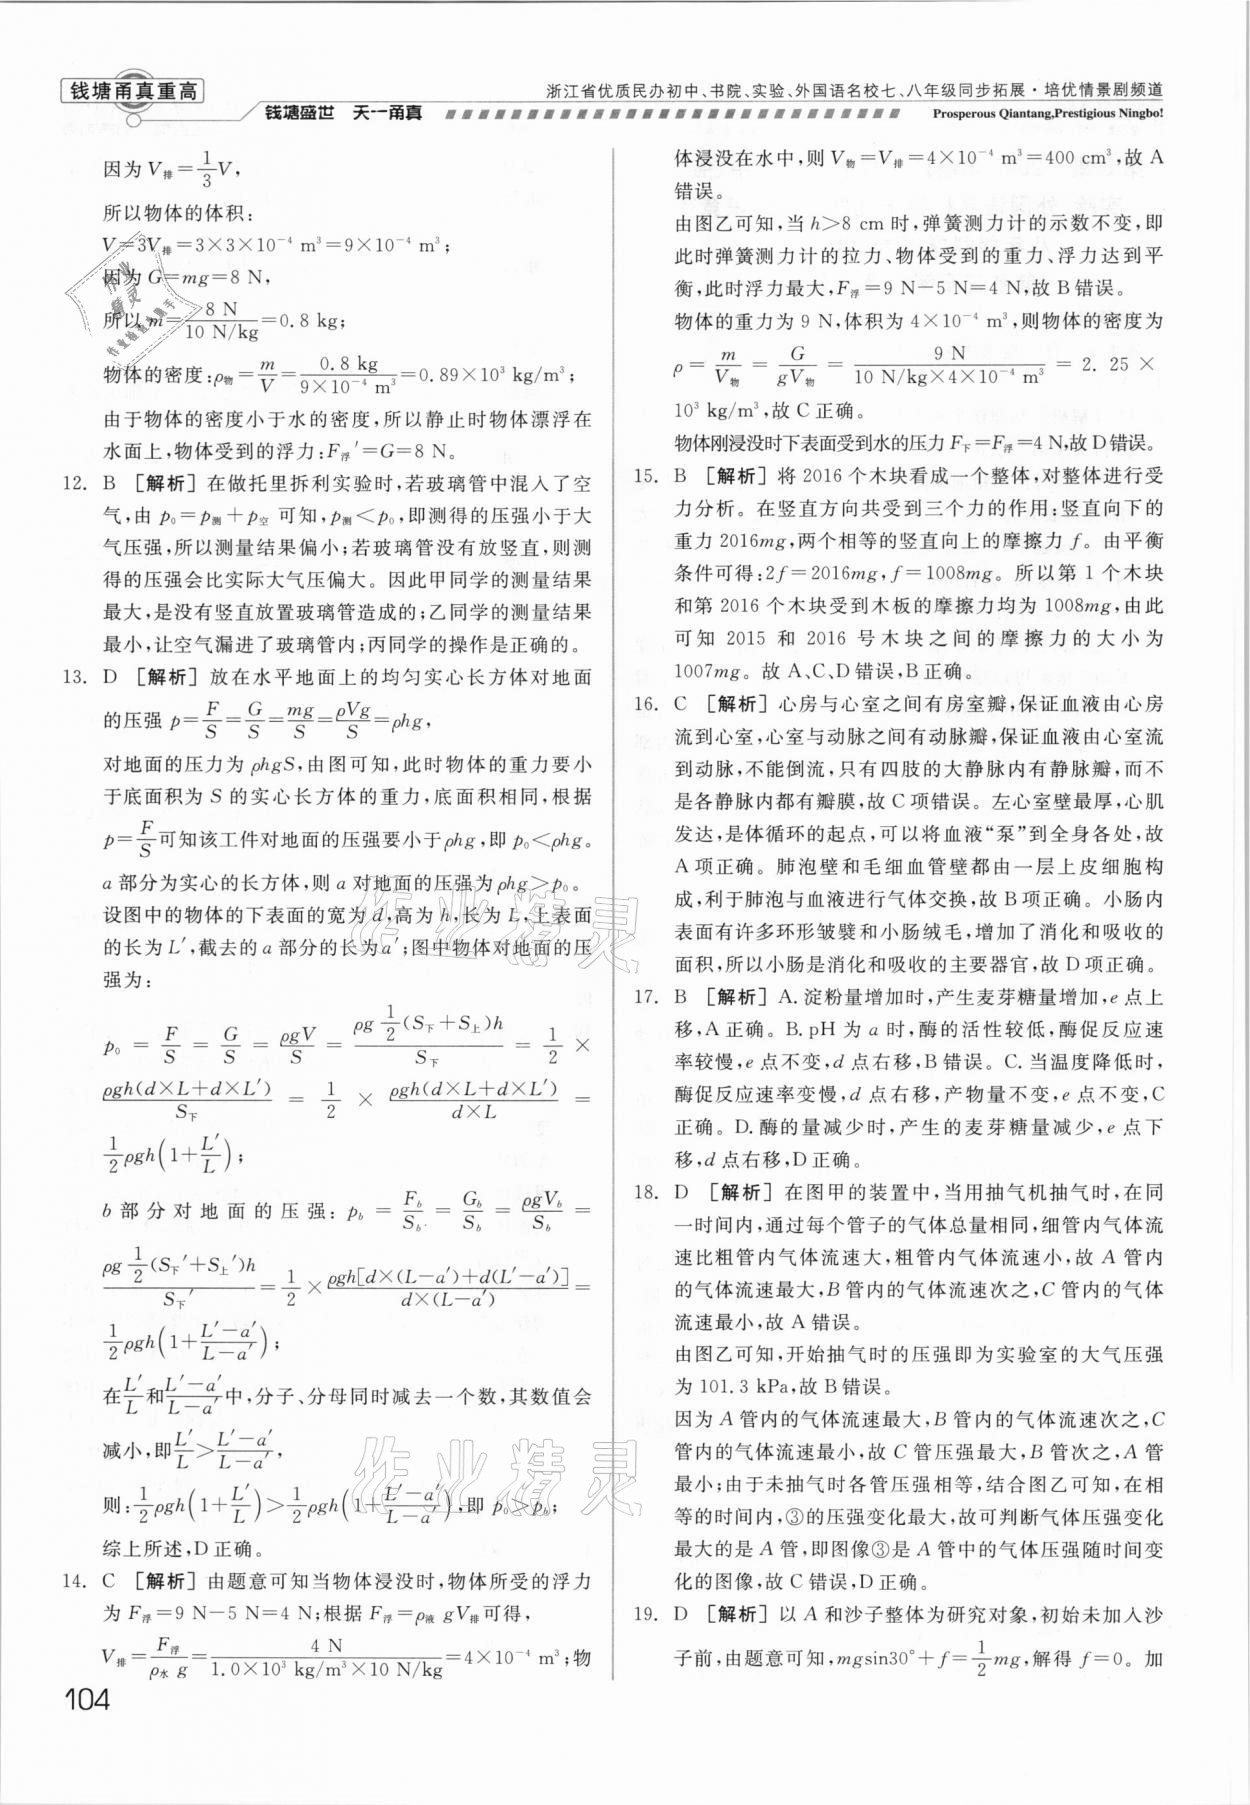 钱塘甬真重高
钱塘盛世 天一甬真
浙江省优质民办初中、书院、实验、外国语名校七、八年级同步拓展·培优情景剧频道
Prosperous Qiantang,Prestigious Ningbo!
因为 V排=1/3V,
所以物体的体积:
V=3V排=3×3×10⁻⁴ m³=9×10⁻⁴ m³;
因为 G=mg=8 N,
所以 m=8 N/10 N/kg=0.8 kg;
物体的密度:ρ物=m/V=0.8 kg/9×10⁻⁴ m³=0.89×10³ kg/m³;
由于物体的密度小于水的密度,所以静止时物体漂浮在
水面上,物体受到的浮力:F浮′=G=8 N。
12. B [解析] 在做托里拆利实验时,若玻璃管中混入了空
气,由 p₀=p测+p空 可知,p测<p₀,即测得的压强小于大
气压强,所以测量结果偏小;若玻璃管没有放竖直,则测
得的压强会比实际大气压偏大。因此甲同学的测量结果
最大,是没有竖直放置玻璃管造成的;乙同学的测量结果
最小,让空气漏进了玻璃管内;丙同学的操作是正确的。
13. D [解析] 放在水平地面上的均匀实心长方体对地面
的压强 p=F/S=G/S=mg/S=ρVg/S=ρhg,
对地面的压力为 ρhgS,由图可知,此时物体的重力要小
于底面积为 S 的实心长方体的重力,底面积相同,根据
p=F/S可知该工件对地面的压强要小于ρhg,即 p₀<ρhg。
a 部分为实心的长方体,则 a 对地面的压强为ρhg>p₀。
设图中的物体的下表面的宽为 d,高为 h,长为 L,上表面
的长为 L′,截去的 a 部分的长为a′;图中物体对地面的压
强为:
p₀ = F/S = G/S = ρgV/S = ρg 1/2(S下+S上)h/S下 = 1/2 ×
ρgh(d×L+d×L′)/S下 = 1/2 × ρgh(d×L+d×L′)/d×L =
1/2ρgh(1+L′/L);
b 部分对地面的压强: p_b = F_b/S_b = G_b/S_b = ρgV_b/S_b =
ρg 1/2(S下′+S上′)h/S下′=1/2×ρgh[d×(L-a′)+d(L′-a′)]/d×(L-a′)=
1/2ρgh(1+L′-a′/L-a′);
在L′/L和L′-a′/L-a′中,分子、分母同时减去一个数,其数值会
减小,即L′/L>L′-a′/L-a′,
则:1/2ρgh(1+L′/L)>1/2ρgh(1+L′-a′/L-a′),即 p₀>p_b;
综上所述,D正确。
14. C [解析] 由题意可知当物体浸没时,物体所受的浮力
为 F浮=9 N-5 N=4 N;根据 F浮=ρ液 gV排可得,
V排=F浮/ρ水 g=4 N/1.0×10³ kg/m³×10 N/kg=4×10⁻⁴ m³;物
104
体浸没在水中,则 V物=V排=4×10⁻⁴ m³=400 cm³,故 A
错误。
由图乙可知,当 h>8 cm 时,弹簧测力计的示数不变,即
此时弹簧测力计的拉力、物体受到的重力、浮力达到平
衡,此时浮力最大,F浮=9 N-5 N=4 N,故 B 错误。
物体的重力为 9 N,体积为 4×10⁻⁴ m³,则物体的密度为
ρ = m/V物 = G/gV物 = 9 N/10 N/kg×4×10⁻⁴ m³ = 2.25 ×
10³ kg/m³,故 C 正确。
物体刚浸没时下表面受到水的压力 F下=F浮=4 N,故 D 错误。
15. B [解析] 将 2016 个木块看成一个整体,对整体进行受
力分析。在竖直方向共受到三个力的作用:竖直向下的
重力 2016mg,两个相等的竖直向上的摩擦力 f。由平衡
条件可得:2f=2016mg,f=1008mg。所以第 1 个木块
和第 2016 个木块受到木板的摩擦力均为 1008mg,由此
可知 2015 和 2016 号木块之间的摩擦力的大小为
1007mg。故 A、C、D 错误,B 正确。
16. C [解析] 心房与心室之间有房室瓣,保证血液由心房
流到心室,心室与动脉之间有动脉瓣,保证血液由心室流
到动脉,不能倒流,只有四肢的大静脉内有静脉瓣,而不
是各静脉内都有瓣膜,故 C 项错误。左心室壁最厚,心肌
发达,是体循环的起点,可以将血液“泵”到全身各处,故
A 项正确。肺泡壁和毛细血管壁都由一层上皮细胞构
成,利于肺泡与血液进行气体交换,故 B 项正确。小肠内
表面有许多环形皱襞和小肠绒毛,增加了消化和吸收的
面积,所以小肠是消化和吸收的主要器官,故 D 项正确。
17. B [解析] A. 淀粉量增加时,产生麦芽糖量增加,e 点上
移,A 正确。B. pH 为 a 时,酶的活性较低,酶促反应速
率较慢,e 点不变,d 点右移,B 错误。C. 当温度降低时,
酶促反应速率变慢,d 点右移,产物量不变,e 点不变,C
正确。D. 酶的量减少时,产生的麦芽糖量减少,e 点下
移,d 点右移,D 正确。
18. D [解析] 在图甲的装置中,当用抽气机抽气时,在同
一时间内,通过每个管子的气体总量相同,细管内气体流
速比粗管内气体流速大,粗管内气体流速小,故 A 管内
的气体流速最大,B 管内的气体流速次之,C 管内的气体
流速最小,故 A 错误。
由图乙可知,开始抽气时的压强即为实验室的大气压强
为 101.3 kPa,故 B 错误。
因为 A 管内的气体流速最大,B 管内的气体流速次之,C
管内的气体流速最小,故 C 管压强最大,B 管次之,A 管
最小;由于未抽气时各管压强相等,结合图乙可知,在相
等的时间内,③的压强变化最大,故可判断气体压强变化
最大的是 A 管,即图像③是 A 管中的气体压强随时间变
化的图像,故 C 错误,D 正确。
19. D [解析] 以 A 和沙子整体为研究对象,初始未加入沙
子前,由题意可知,mgsin30°+f=1/2mg,解得 f=0。加
作业精灵
作业精灵
作业精灵